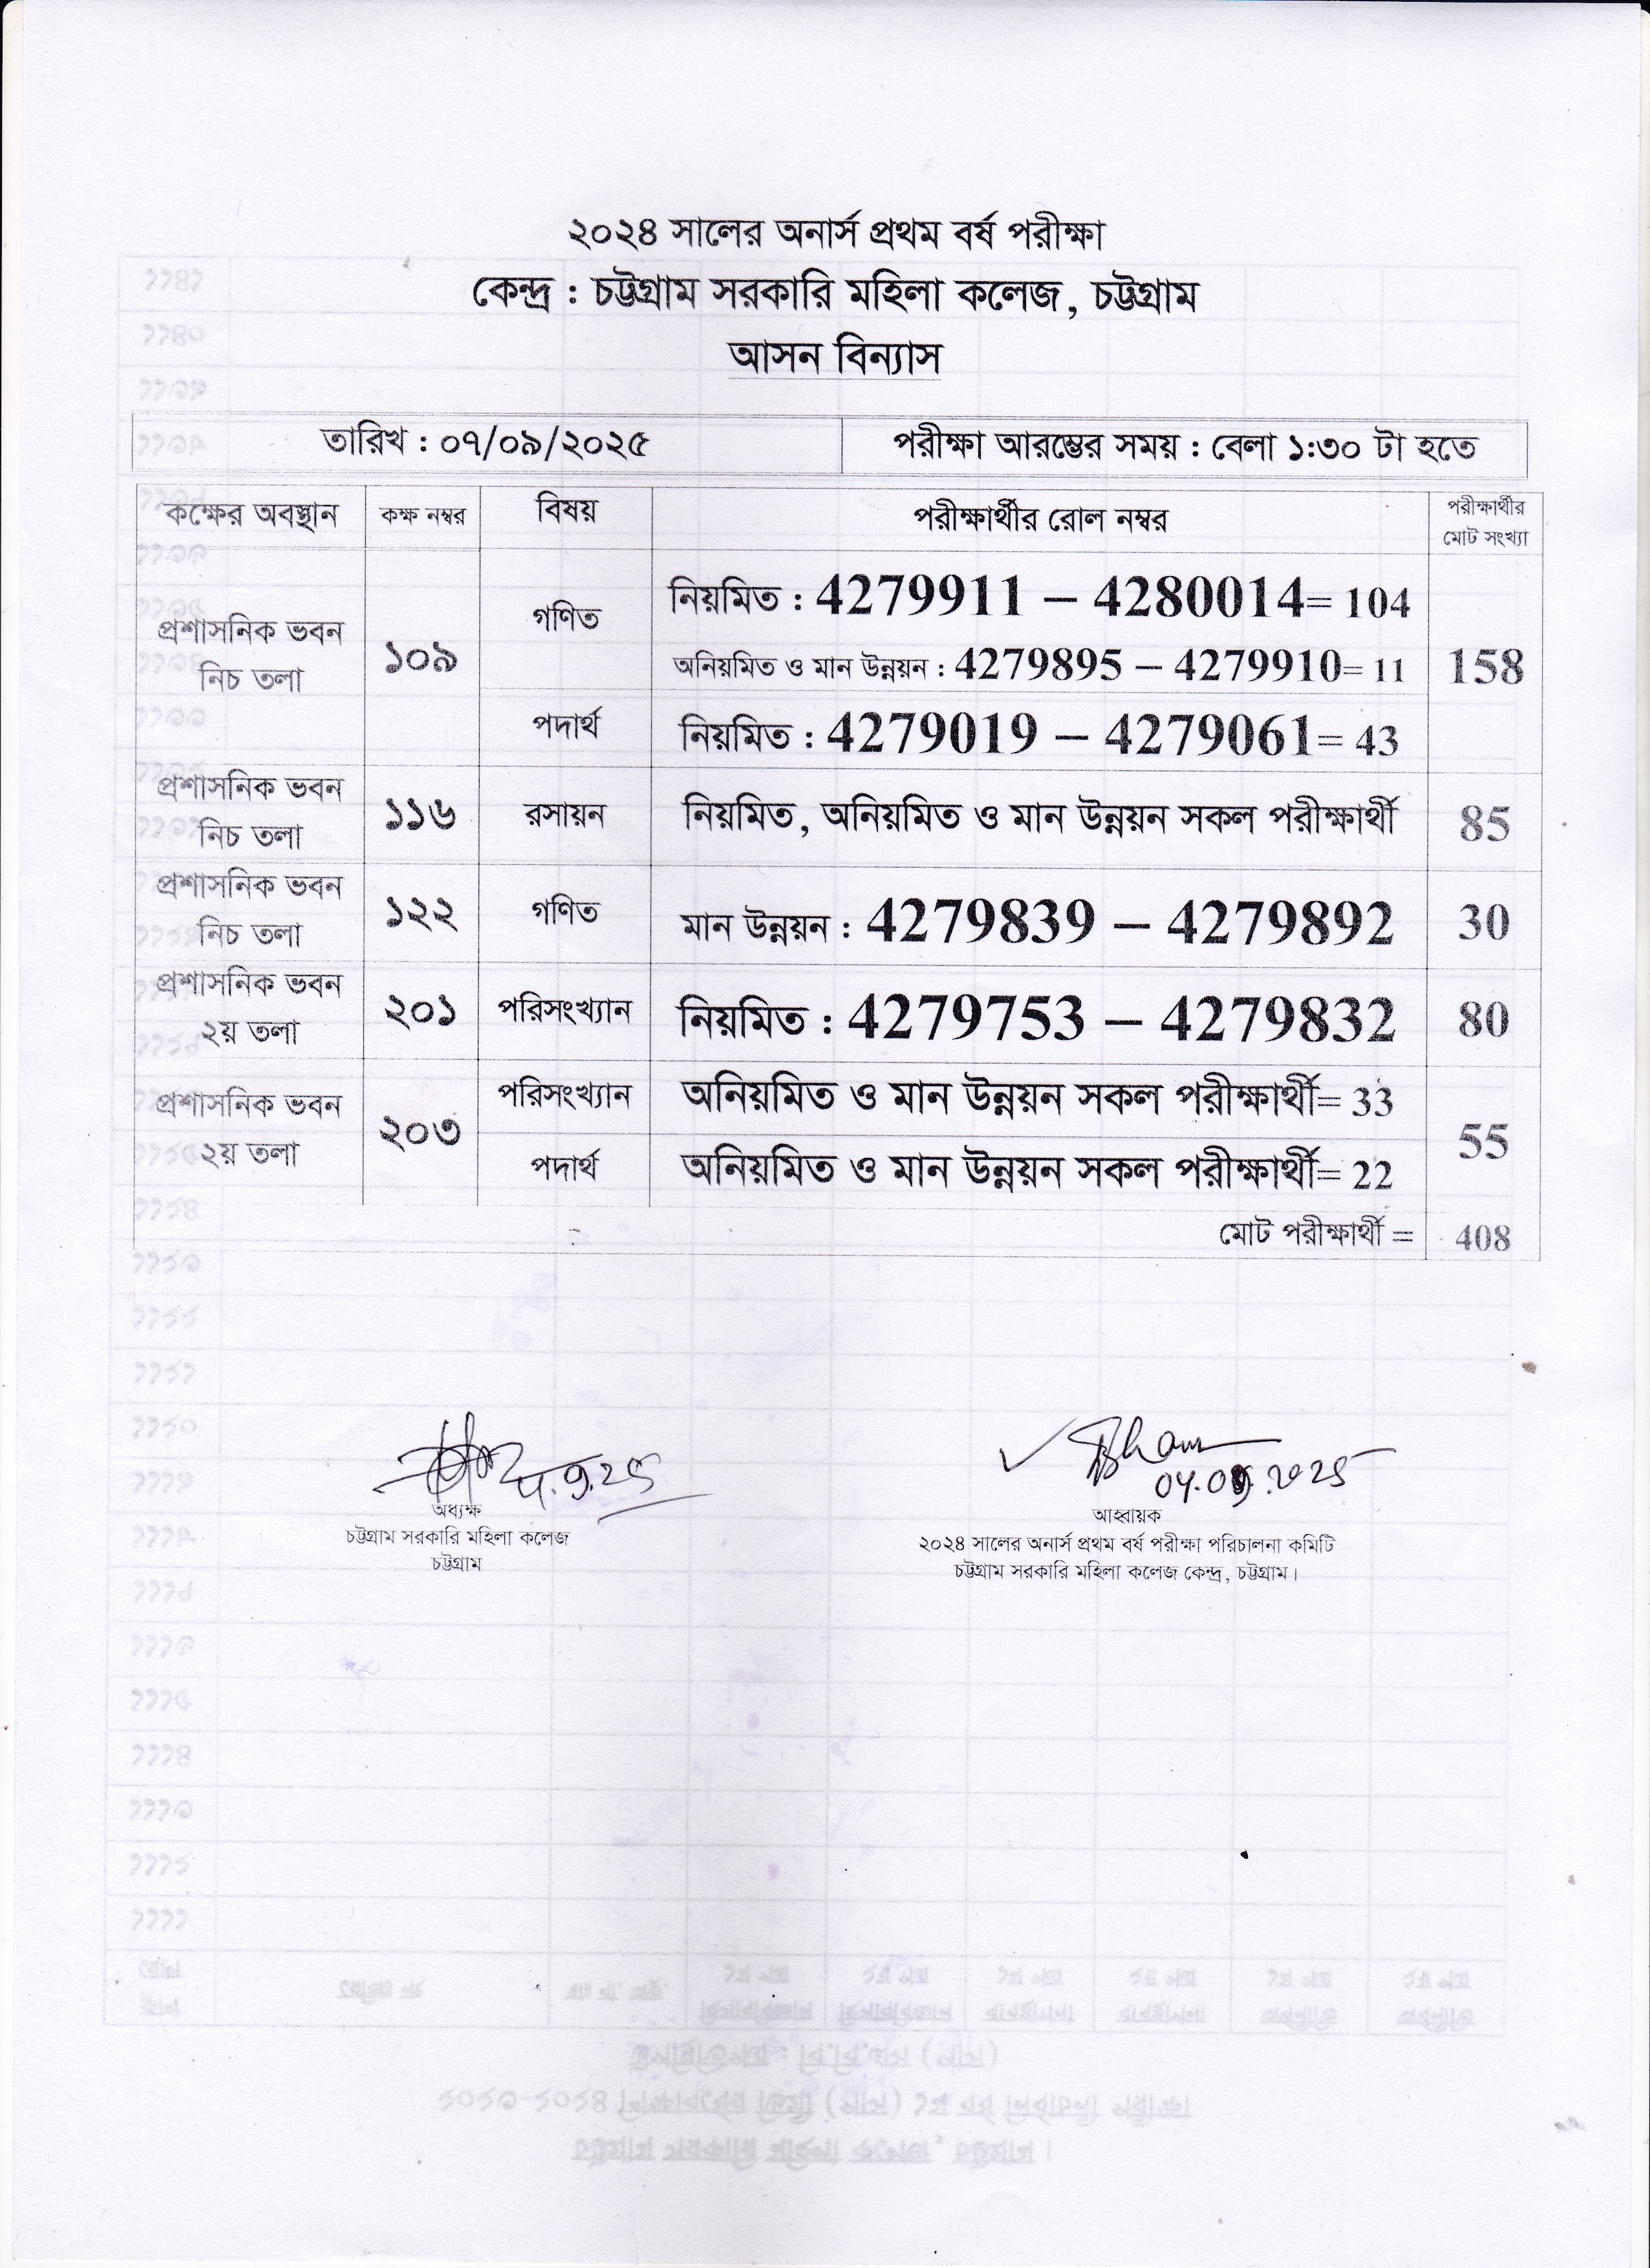 ২০২৪ সালের অনার্স প্রথম বর্ষ পরীক্ষা
কেন্দ্র : চট্টগ্রাম সরকারি মহিলা কলেজ, চট্টগ্রাম
আসন বিন্যাস
তারিখ : ০৭/০৯/২০২৫ পরীক্ষা আরম্ভের সময় : বেলা ১:৩০ টা হতে
কক্ষের অবস্থান কক্ষ নম্বর বিষয় পরীক্ষার্থীর রোল নম্বর পরীক্ষার্থীর মোট সংখ্যা
প্রশাসনিক ভবন নিচ তলা ১০৯ গণিত নিয়মিত : 4279911 – 4280014= 104 158
অনিয়মিত ও মান উন্নয়ন : 4279895 – 4279910= 11
পদার্থ নিয়মিত : 4279019 – 4279061= 43
প্রশাসনিক ভবন নিচ তলা ১১৬ রসায়ন নিয়মিত, অনিয়মিত ও মান উন্নয়ন সকল পরীক্ষার্থী 85
প্রশাসনিক ভবন নিচ তলা ১২২ গণিত মান উন্নয়ন : 4279839 – 4279892 30
প্রশাসনিক ভবন ২য় তলা ২০১ পরিসংখ্যান নিয়মিত : 4279753 – 4279832 80
প্রশাসনিক ভবন ২য় তলা ২০৩ পরিসংখ্যান অনিয়মিত ও মান উন্নয়ন সকল পরীক্ষার্থী= 33 55
পদার্থ অনিয়মিত ও মান উন্নয়ন সকল পরীক্ষার্থী= 22
মোট পরীক্ষার্থী = 408
অধ্যক্ষ
চট্টগ্রাম সরকারি মহিলা কলেজ
চট্টগ্রাম
আহ্বায়ক
২০২৪ সালের অনার্স প্রথম বর্ষ পরীক্ষা পরিচালনা কমিটি
চট্টগ্রাম সরকারি মহিলা কলেজ কেন্দ্র, চট্টগ্রাম।